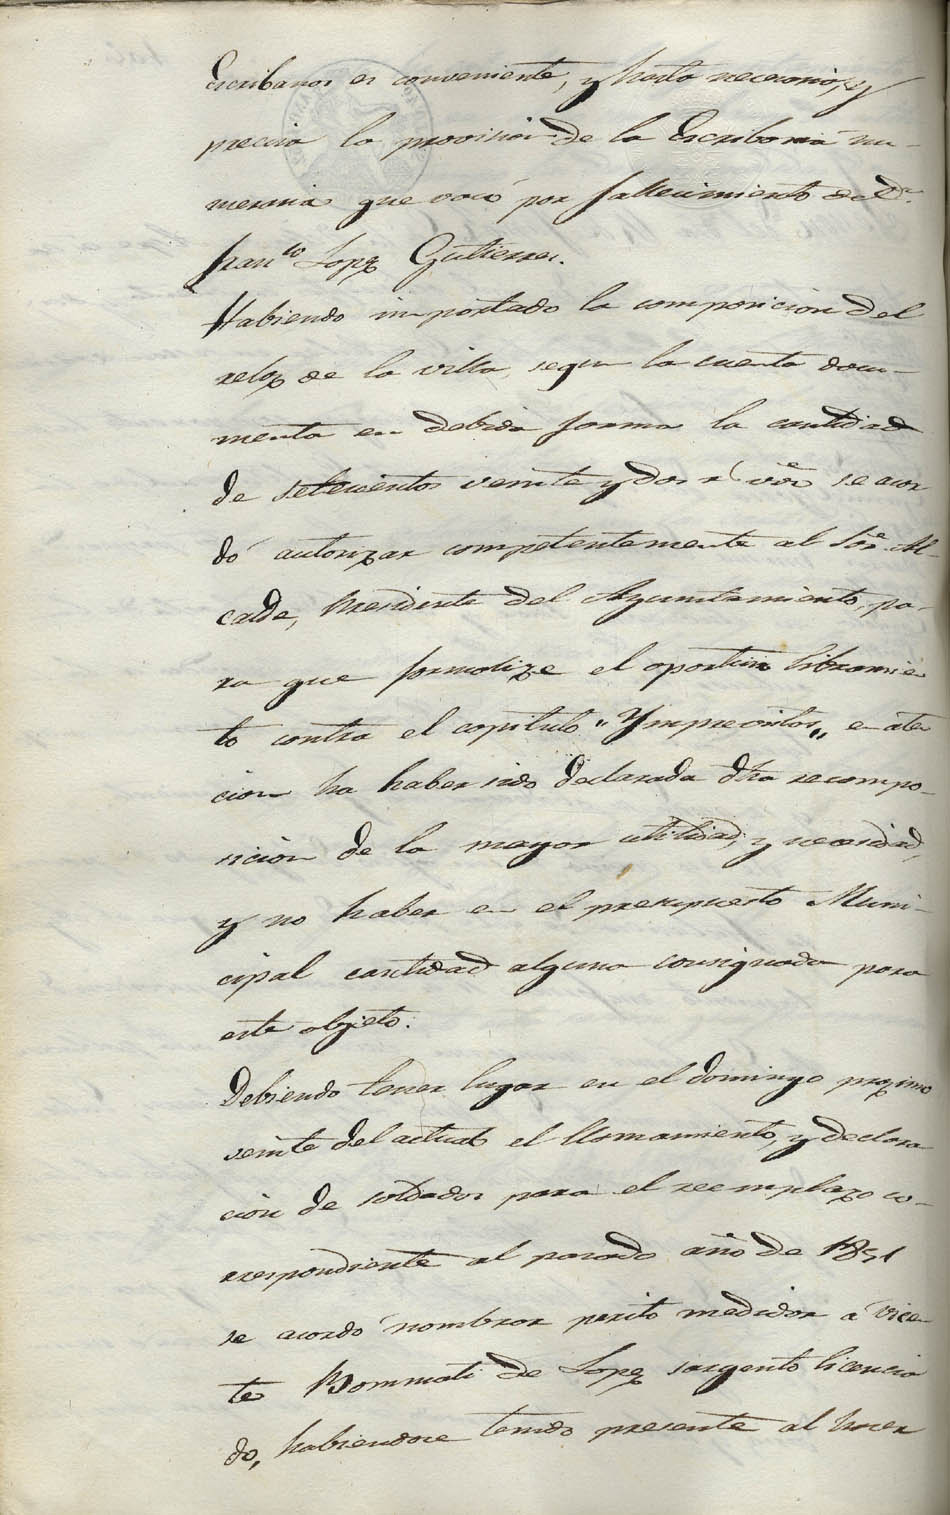 Escribanos es conveniente, y harto necesario, y
precisa la provision de la Escribania nu-
meraria que vacó por fallecimiento de Dn.
Franco Lopez Gutierrez.
Habiendo importado la composicion del
relox de la villa, segun la cuenta docu-
menta en debida forma la cantidad
de setecientos veinte y dos rs von se acor
dó autorizar competentemente al Sor. Al-
calde, Presidente del Ayuntamiento, pa-
ra que formalize el oportuno libramien
to contra el capitulo "Ymprevistos,, en aten
cion ha haber sido declarada dha recompo-
sicion de la mayor utilidad, y necesidad,
y no haber en el presupuesto Muni-
cipal cantidad alguna consignada para
este objeto.
Debiendo tener lugar en el domingo proximo
veinte del actual el llamamiento, y declara
cion de soldados para el reemplazo co-
rrespondiente al pasado año de 1851
se acordó nombrar perito medidor a Vicen
te Bommati de Lopez sargento licencia
do, habiendose tenido presente al hacer